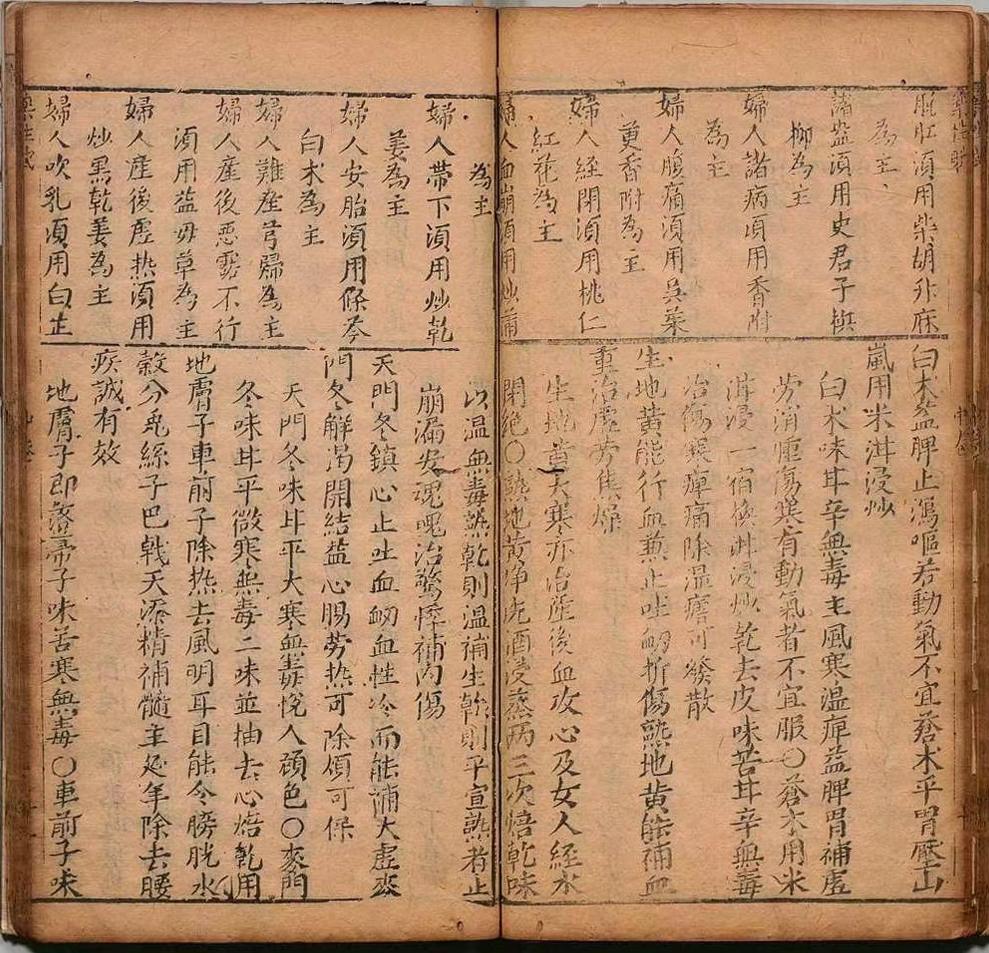 脱肛湏用柴胡升麻
為主
諸蟲湏用史君子槟
榔為主
婦人諸病湏用香附
為主
婦人腹痛湏用吳茱
萸香附為主
婦人经閉湏用桃仁
紅花為主
婦人血崩湏用炒蒲
白术益脾止瀉嘔若動氣不宜蒼术平胃壓山
嵐用米泔浸炒
白术味甘辛無毒主風寒温痺益脾胃補虚
劳消腫傷寒有動氣者不宜服〇蒼术用米
泔浸一宿换泔浸炒乾去皮味苦甘辛無毒
治傷寒痺痛除濕瘧可發散
生地黄能行血兼止吐衂折傷熟地黄能補血
重治虚劳焦燥
生地黄大寒亦治産後血攻心及女人経水
閉绝〇熟地黄净洗酒浸蒸两三次焙乾味
為主
婦人帶下湏用炒乾
姜為主
婦人安胎湏用條芩
白术為主
婦人難産芎歸為主
婦人産後惡露不行
湏用益毋草為主
婦人産後虚热湏用
炒黑乾姜為主
婦人吹乳湏用白芷
以温無毒蒸乾則温補生乾則平宣熟者止
崩漏安魂魄治驚悸補内傷
天門冬鎮心止吐血衂血性冷而能補大虚麥
門冬解渴開結益心腸劳热可除煩可保
天門冬味甘平大寒無毒悦人顔色〇麥門
冬味甘平微寒無毒二味並抽去心焙乾用
地膚子車前子除热去風明耳目能令膀胱水
穀分兎絲子巴戟天添精補髓主延年除去腰
疾誠有效
地膚子即落帚子味苦寒無毒〇車前子味